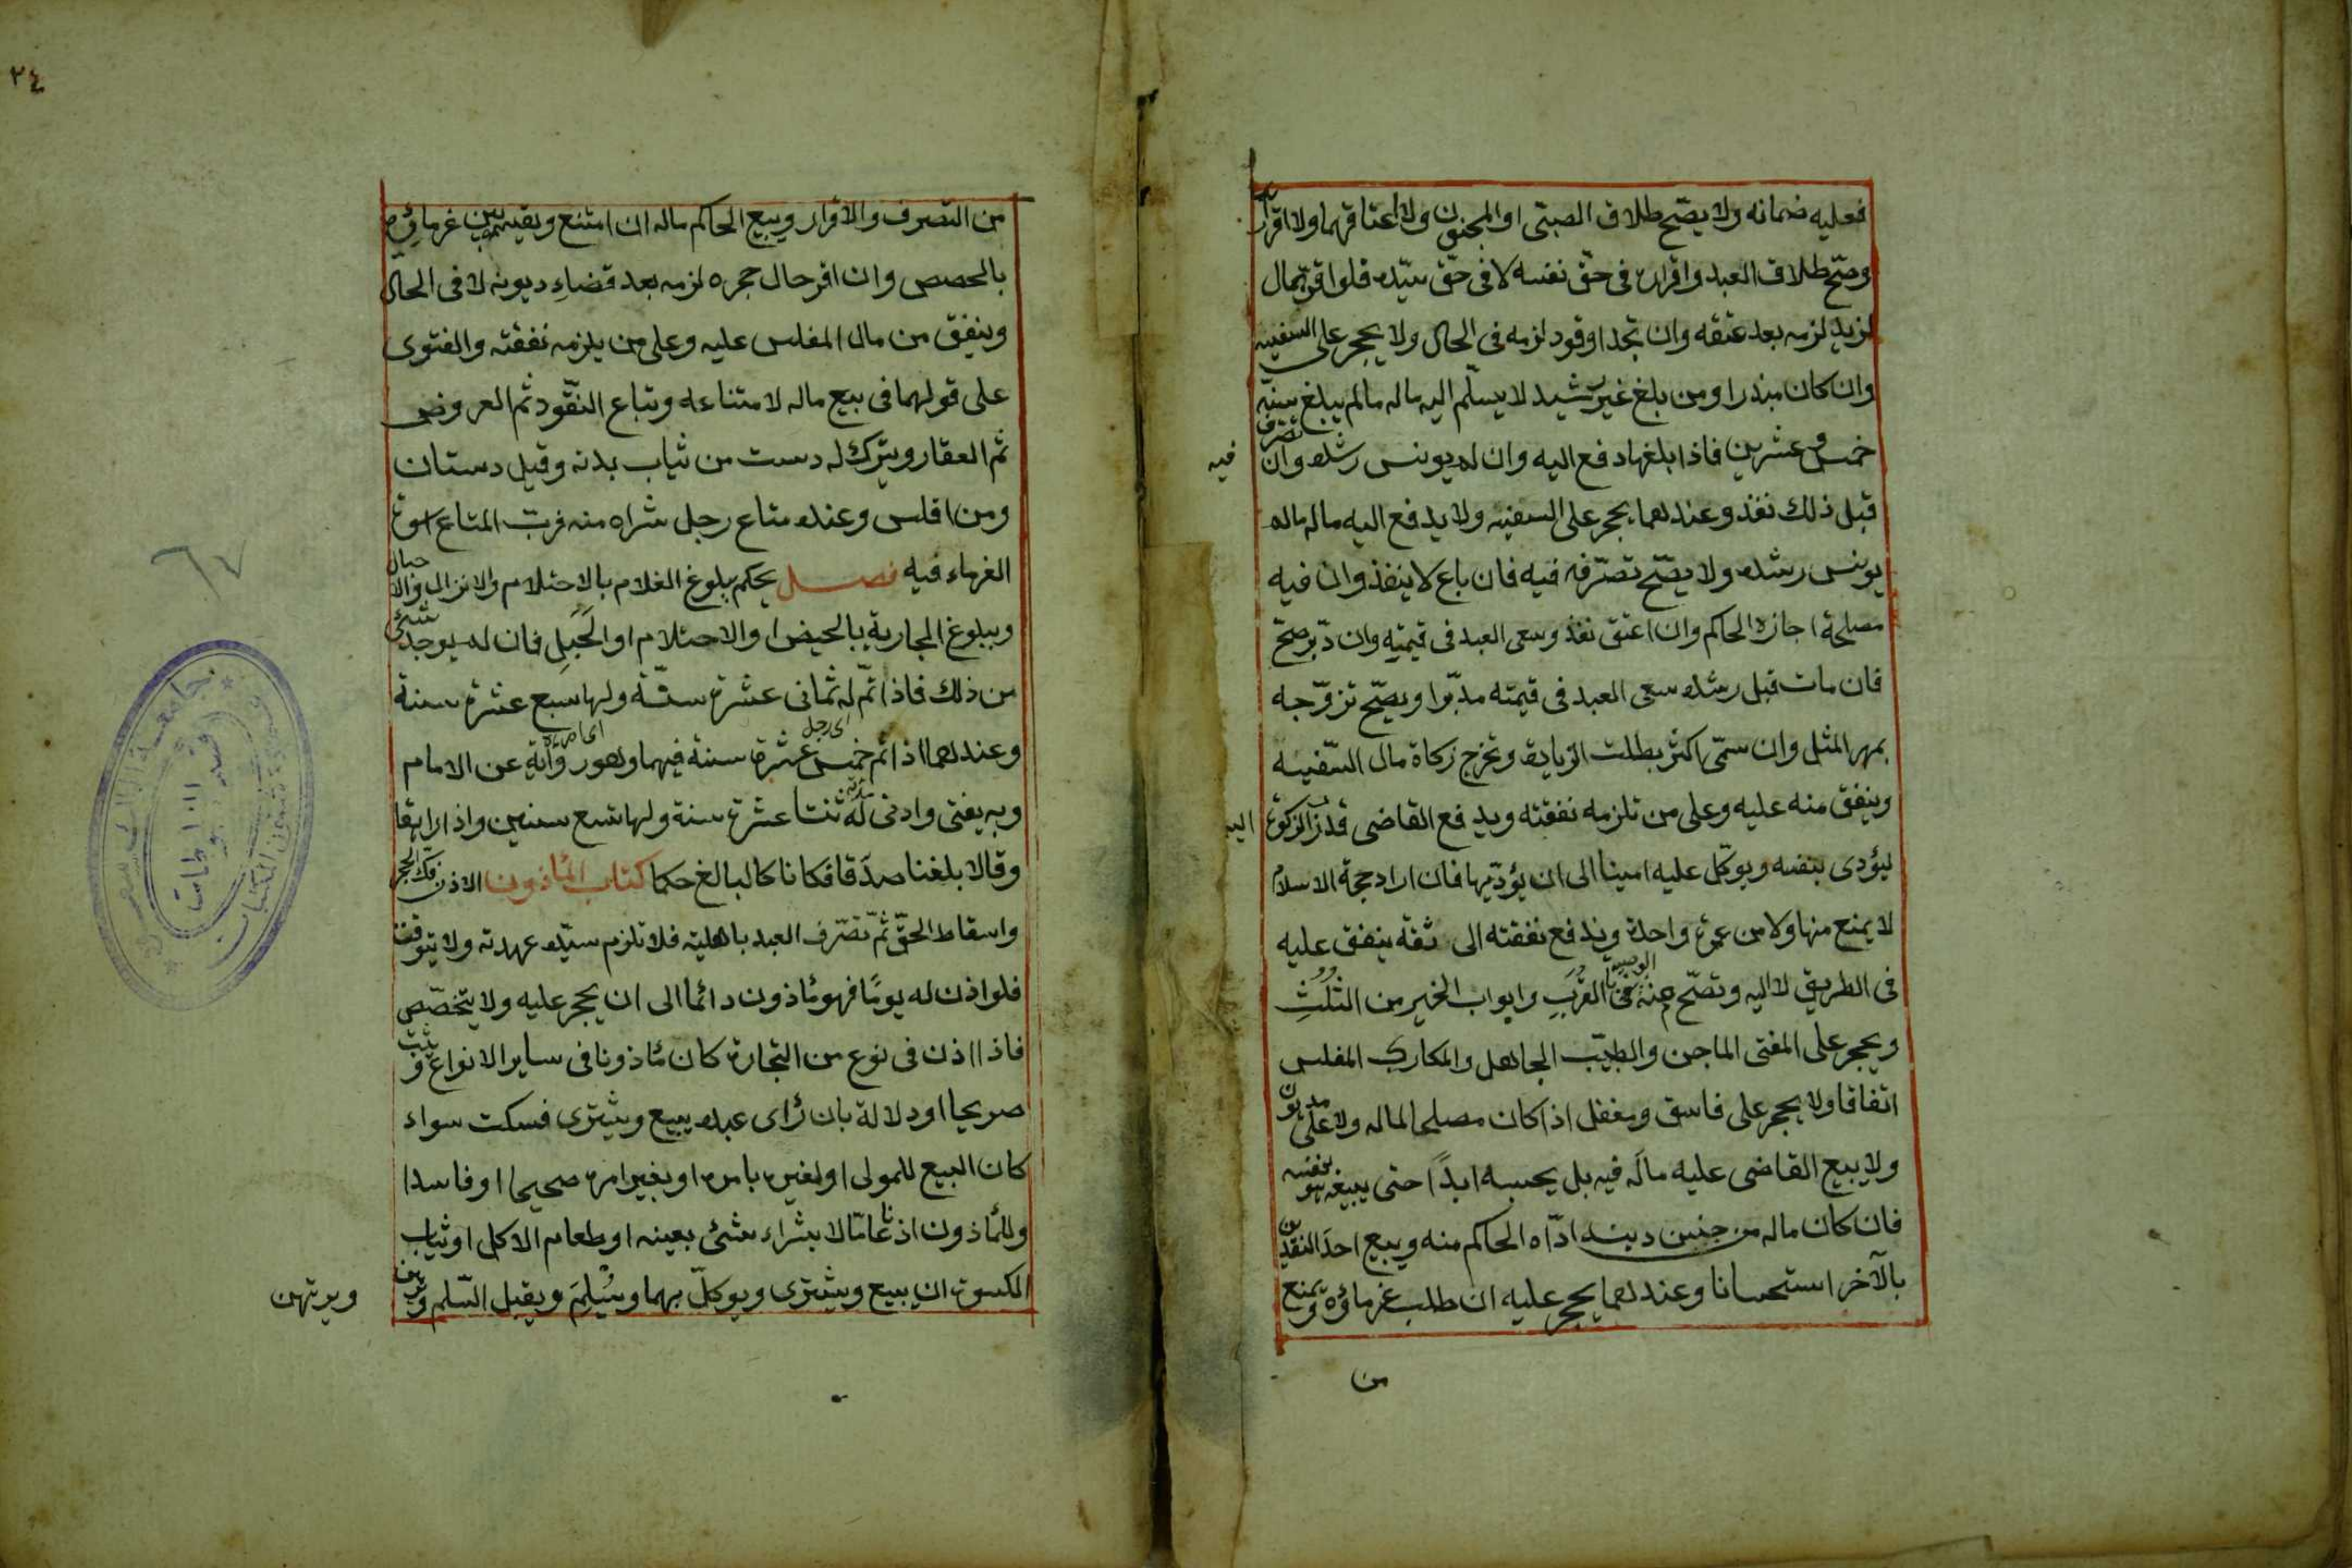 فعليه ضمانه ولا يصّح طلاق الصبى او المجنون ولا اعتاقهما ولا اقرارهما
وصّح طلاق العبد واقراره فى حقّ نفسه لا فى حقّ سيّده فلو اقرّ بمال
لزيد لزمه بعد عتقه وان بحد او قود لزمه فى الحال ولا يحجر على السفيه
وان كان مبذرا ومن بلغ غير رشيد لا يسلّم اليه ماله مالم يبلغ سنّه
خمس وعشرين فاذا بلغها دفع اليه وان لم يونس رشده وان تصرف فيه
قبل ذلك نفذ وعندهما يحجر على السفيه ولا يدفع اليه ماله مالم
يونس رشده ولا يصّح تصرّفه فيه فان باع لا ينفذ وان فيه
مصلحة اجازه الحاكم وان اعتق نفذ وسعى العبد فى قيمته وان دبّر صحّ
فان مات قبل رشده سعى العبد فى قيمته مدبّرا ويصّح تزوّجه
بمهر المثل وان سمّى اكثر بطلت الزيادة وتخرج زكاة مال السّفيه
وينفق منه عليه وعلى من تلزمه نفقته ويدفع القاضى قدر الزكوة اليه
ليؤدى بنفسه ويوكّل عليه امينا الى ان يؤدّيها فان اراد حجة الاسلام
لا يمنع منها ولا من عمرة واحدة وتدفع نفقته الى ثقة ينفق عليه
فى الطريق لا اليه وتصّح منه الوصية فى القرب وابواب الخير من الثلث
ويحجر على المفتى الماجن والطبيب الجاهل والمكارى المفلس
اتفاقا ولا يحجر على فاسق ومغفل اذا كان مصلحا لماله ولا على مديون
ولا يبيع القاضى عليه ماله فيه بل يحبسه ابدًا حتى يبيعه هو بنفسه
فان كان ماله من جنس دينه ادّاه الحاكم منه ويبيع احد النقدين
بالآخر استحسانا وعندهما يحجر عليه ان طلب غرماؤه ويمنع
من
٢٤
من التصرف والاقرار ويبيع الحاكم ماله ان امتنع ويقسمه بين غرمائه
بالحصص وان اقر حال حجره لزمه بعد قضاء ديونه لا فى الحال
وينفق من مال المفلس عليه وعلى من يلزمه نفقته والفتوى
على قولهما فى بيع ماله لامتناعه وتباع النقّود ثم العروض
ثم العقار ويترك له دست من ثياب بدنه وقيل دستان
ومن افلس وعنده متاع رجل شراه منه فربّ المتاع اسوة
الغرماء فيه فصل يحكم ببلوغ الغلام بالاحتلام والانزال والاحبال
وببلوغ الجارية بالحيض او الاحتلام او الحَبَلِ فان لم يوجد شئ
من ذلك فاذا تمّ له ثمانى عشرة سنّة ولها سبع عشرة سنة
وعندهما اذا تم خمس عشرة سنة فيهما وهو رواية عن الامام
وبه يفتى وادنى مدّته له ثنتا عشرة سنة ولها تسع سنين واذا راهقا
وقالا بلغنا صدّقا فكانا كالبالغ حكما كتاب المأذون الاذن فك الحجر
واسقاط الحقّ ثمّ تصرّف العبد باهليته فلا تلزم سيّده عهدته ولا يتوقت
فلو اذن له يومًا فهو مأذون دائما الى ان يحجر عليه ولا يتخصّص
فاذا اذن فى نوع من التجارة كان مأذونا فى ساير الانواع ويثبت
صريحا او دلالة بان رأى عبده يبيع ويشترى فسكت سواء
كان البيع للمولى او لغيره بامره او بغير امره صحيحا او فاسدا
وللمأذون اذنا عامّا لا بشراء شئ بعينه او طعام الاكل او ثياب
الكسوة ان يبيع ويشترى ويوكّل بهما ويُسْلِمَ ويقبل السّلم ويرهن
ويرتهن
٦٧